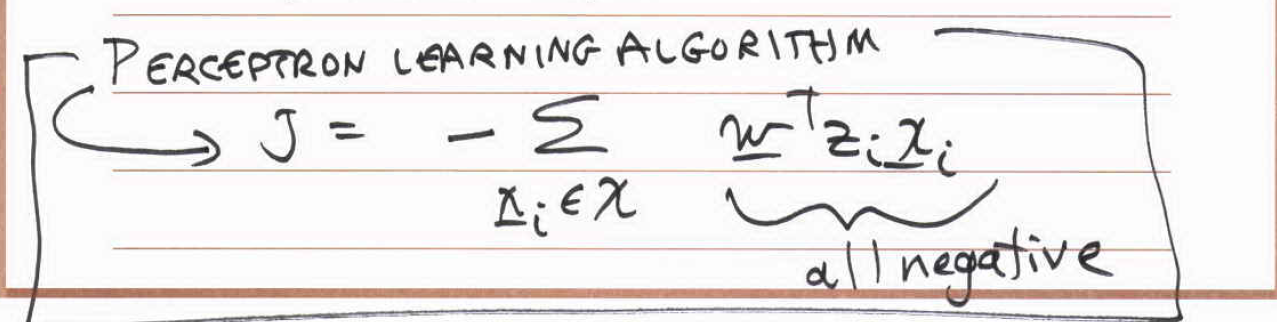 PERCEPTRON LEARNING ALGORITHM
→ J = - Σ w^T z_i x_i
x_i ∈ X
all negative